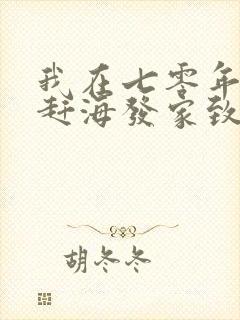 我在七零年
赶海發家致
胡冬冬